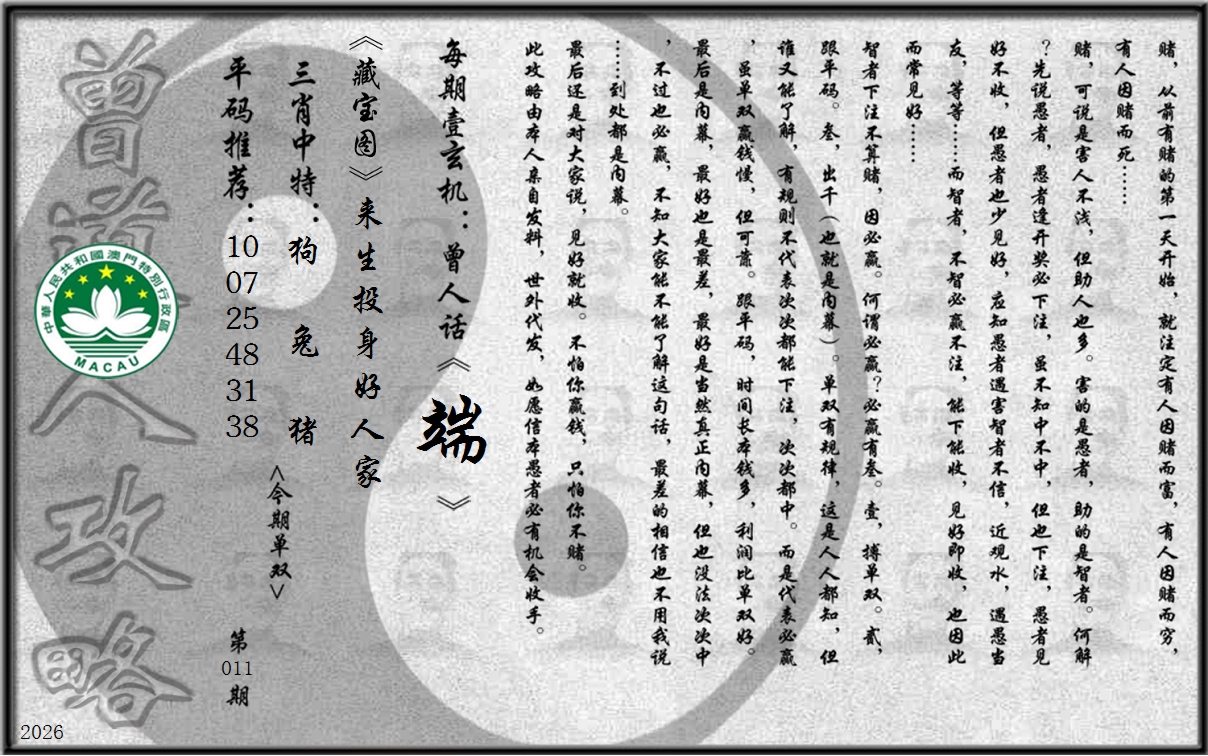 赌，从前有赌的第一天开始，就注定有人因赌而富，有人因赌而穷，
有人因赌而死……
赌，可说是害人不浅，但助人也多。害的是愚者，助的是智者。何解
？先说愚者，愚者逢开奖必下注，虽不知中不中，但也下注，愚者见
好不收，但愚者也少见好，应知愚者遇害智者不信，近观水，遇愚当
友，等等……而智者，不智必赢不注，能下能收，见好即收，也因此
而常见好……
智者下注不算赌，因必赢。何谓必赢？必赢有叁。壹，搏单双。贰，
跟平码。叁，出千（也就是内幕）。单双有规律，这是人人都知，但
谁又能了解，有规则不代表次次都能下注，次次都中。而是代表必赢
，虽单双赢钱慢，但可靠。跟平码，时间长本钱多，利润比单双好。
最后是内幕，最好也是最差，最好是当然真正内幕，但也没法次次中
，不过也必赢，不知大家能不能了解这句话，最差的相信也不用我说
……到处都是内幕。
最后还是对大家说，见好就收。不怕你赢钱，只怕你不赌。
此攻略由本人亲自发料，世外代发，如愿信本愚者必有机会收手。
每期壹玄机：曾人话《端》
《藏宝图》来生投身好人家
三肖中特：狗 兔 猪
<今期单双>
平码推荐：10 07 25 48 31 38
第011期
曾道人攻略
中華人民共和國澳門特別行政區
MACAU
2026